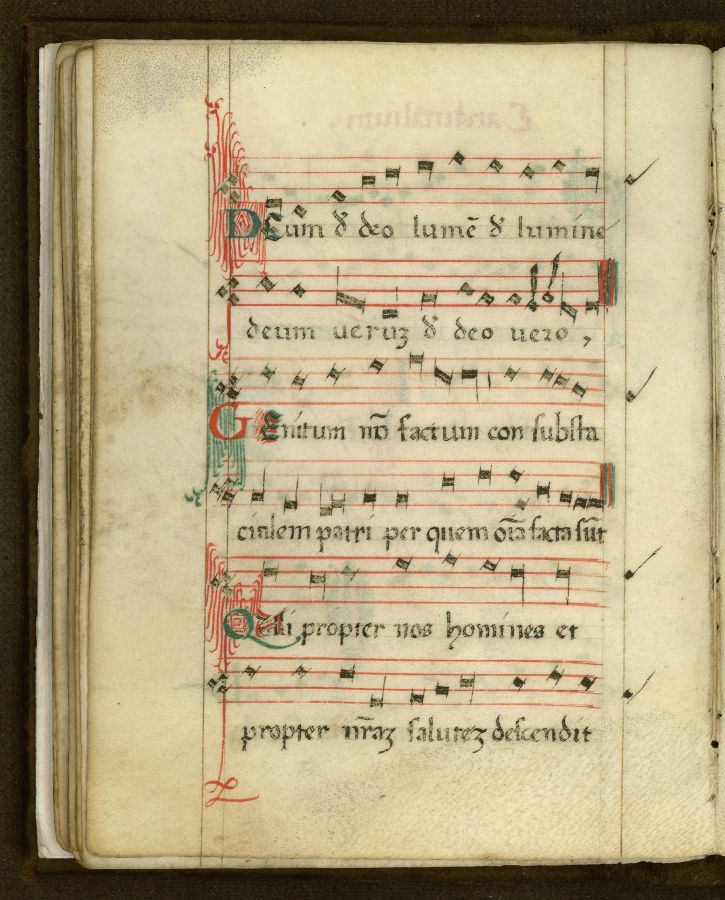 DEum đ deo lumē đ lumine
deum veruꝫ đ deo vero,
GEnitum nō factum con ſubſta
cialem patri per quem oīa facta ſūt
Qui propter nos homines et
propter nr̄aꝫ ſaluteꝫ deſcendit